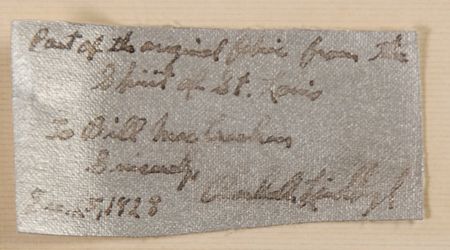 Part of the original fabric from the
Spirit of St. Louis
To Bill
Sincerely,
Charles A. Lindbergh
1928